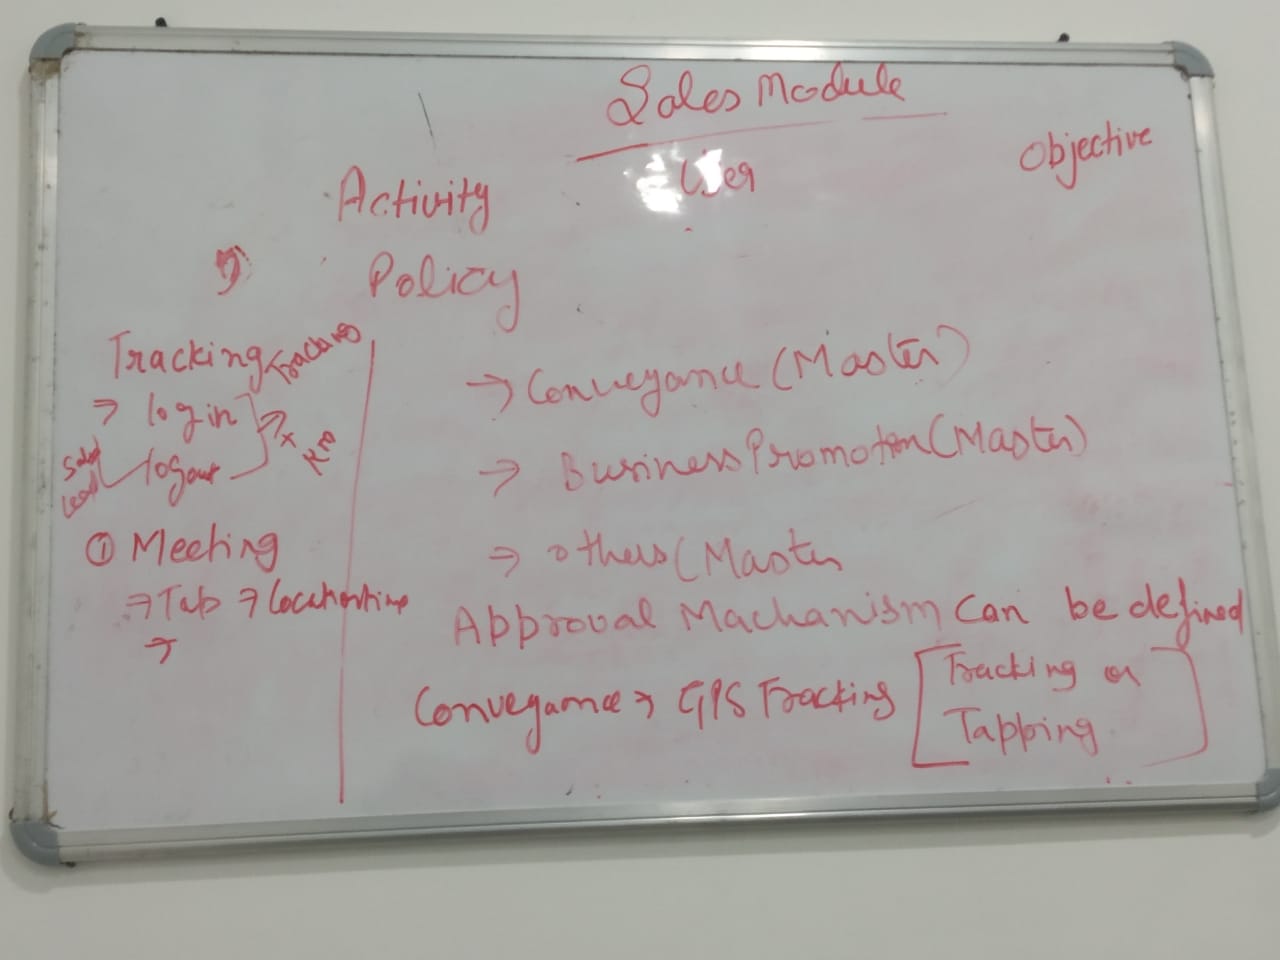 Sales Module
Activity User Objective
Policy
Tracking Tracking
→ login
logout
+ Km
Sales
Lead
① Meeting
→ Tab → Location time
→
→ Conveyance (Master)
→ Business Promotion (Master)
→ others (Master
Approval Machanism Can be defined
Conveyance → GPS Tracking [Tracking or
Tapping]